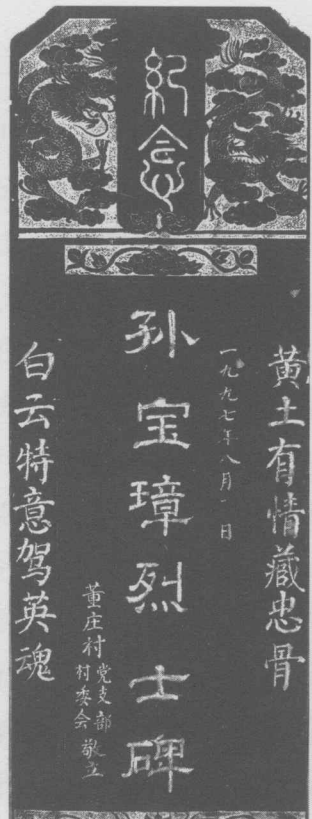 纪念
黄土有情藏忠骨
一九九七年八月一日
孙宝璋烈士碑
董庄村党支部村委会敬立
白云特意驾英魂